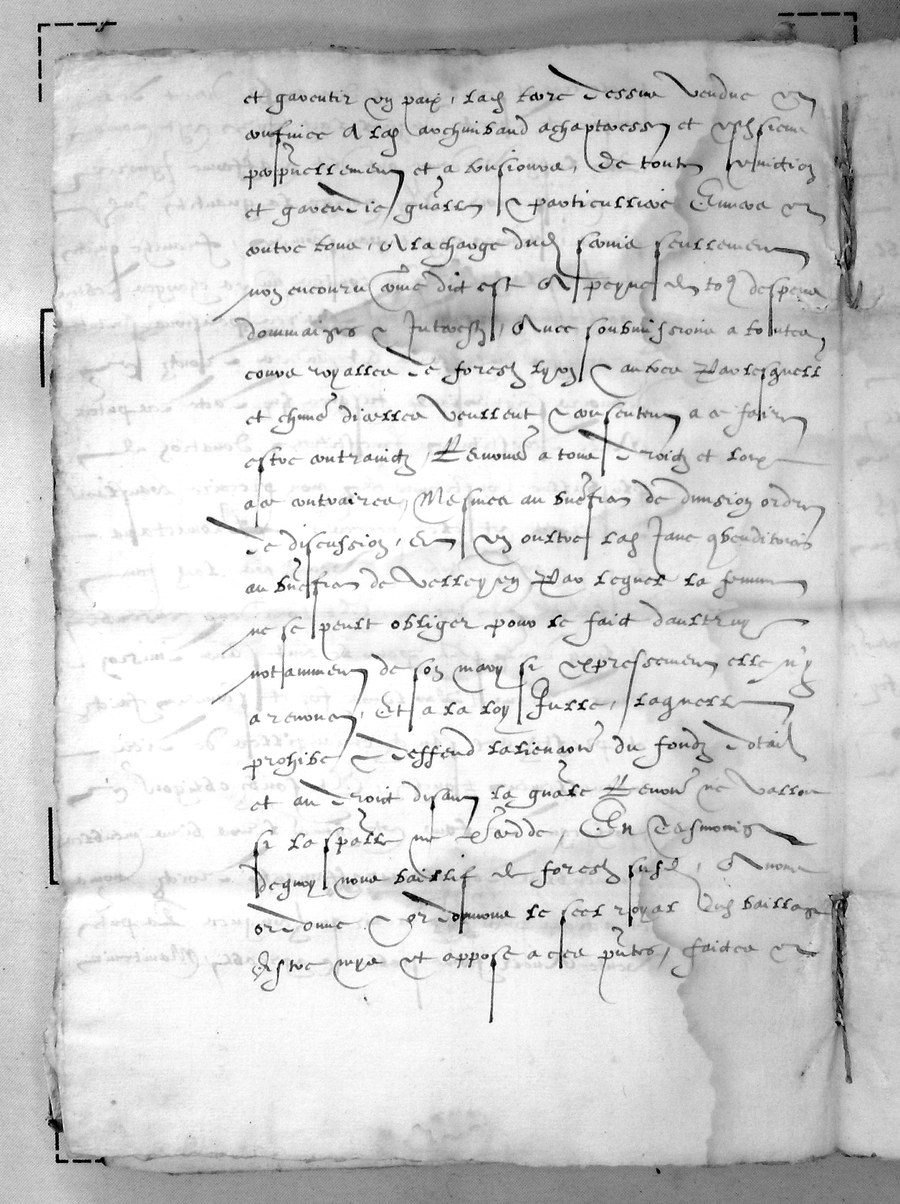 et garentir en paix, lad terre dessus vendue en
confince A lad archimbaud achapteresse et ses siens
perpetuellement et a tousiours, de toute eviction
et garendie gnalle & particulliere Envers et
contre tous, A la charge dud servis seullement
non encouru come dict est A peyne de tos despens
dommaiges & Interestz, Avec soubmissions a toutes
cours royalles de forestz lyon & autres Par lesquelz
et chune dicelles veullent & consentent a ce faire
estre contrainctz, Renoncer a tous droictz et loix
a ce contraires, Mesmes au benefice de division ordre
de discussion, et en oultre lad Jane venditeris
au benefice de Velleyen Par lequel la femme
ne se peult obliger pour le faict daultruy
notamment de son mary si expressement elle n'y
a renonce, Et a la loy Jullie, laquelle
prohibe & deffend lalienaon du fondz dotail
et au droict disant la gnalle Renon ne valloir
si la spalle ne precedde, En Tesmoing
dequoy nous baillif de forestz susd, Avons
ordonne & ordonnons le seel royal dud bailliage
Estre mys et appose a ces pntes, faictes et